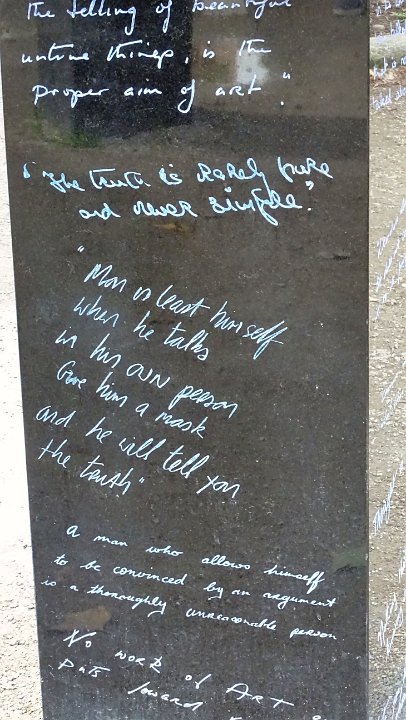 the telling of beautiful
untrue things, is the
proper aim of art."
"The truth is rarely pure
and never simple."
"Man is least himself
when he talks
in his own person
Give him a mask
and he will tell you
the truth"
a man who allows himself
to be convinced by an argument
is a thoroughly unreasonable person
No work of ART
Puts forward